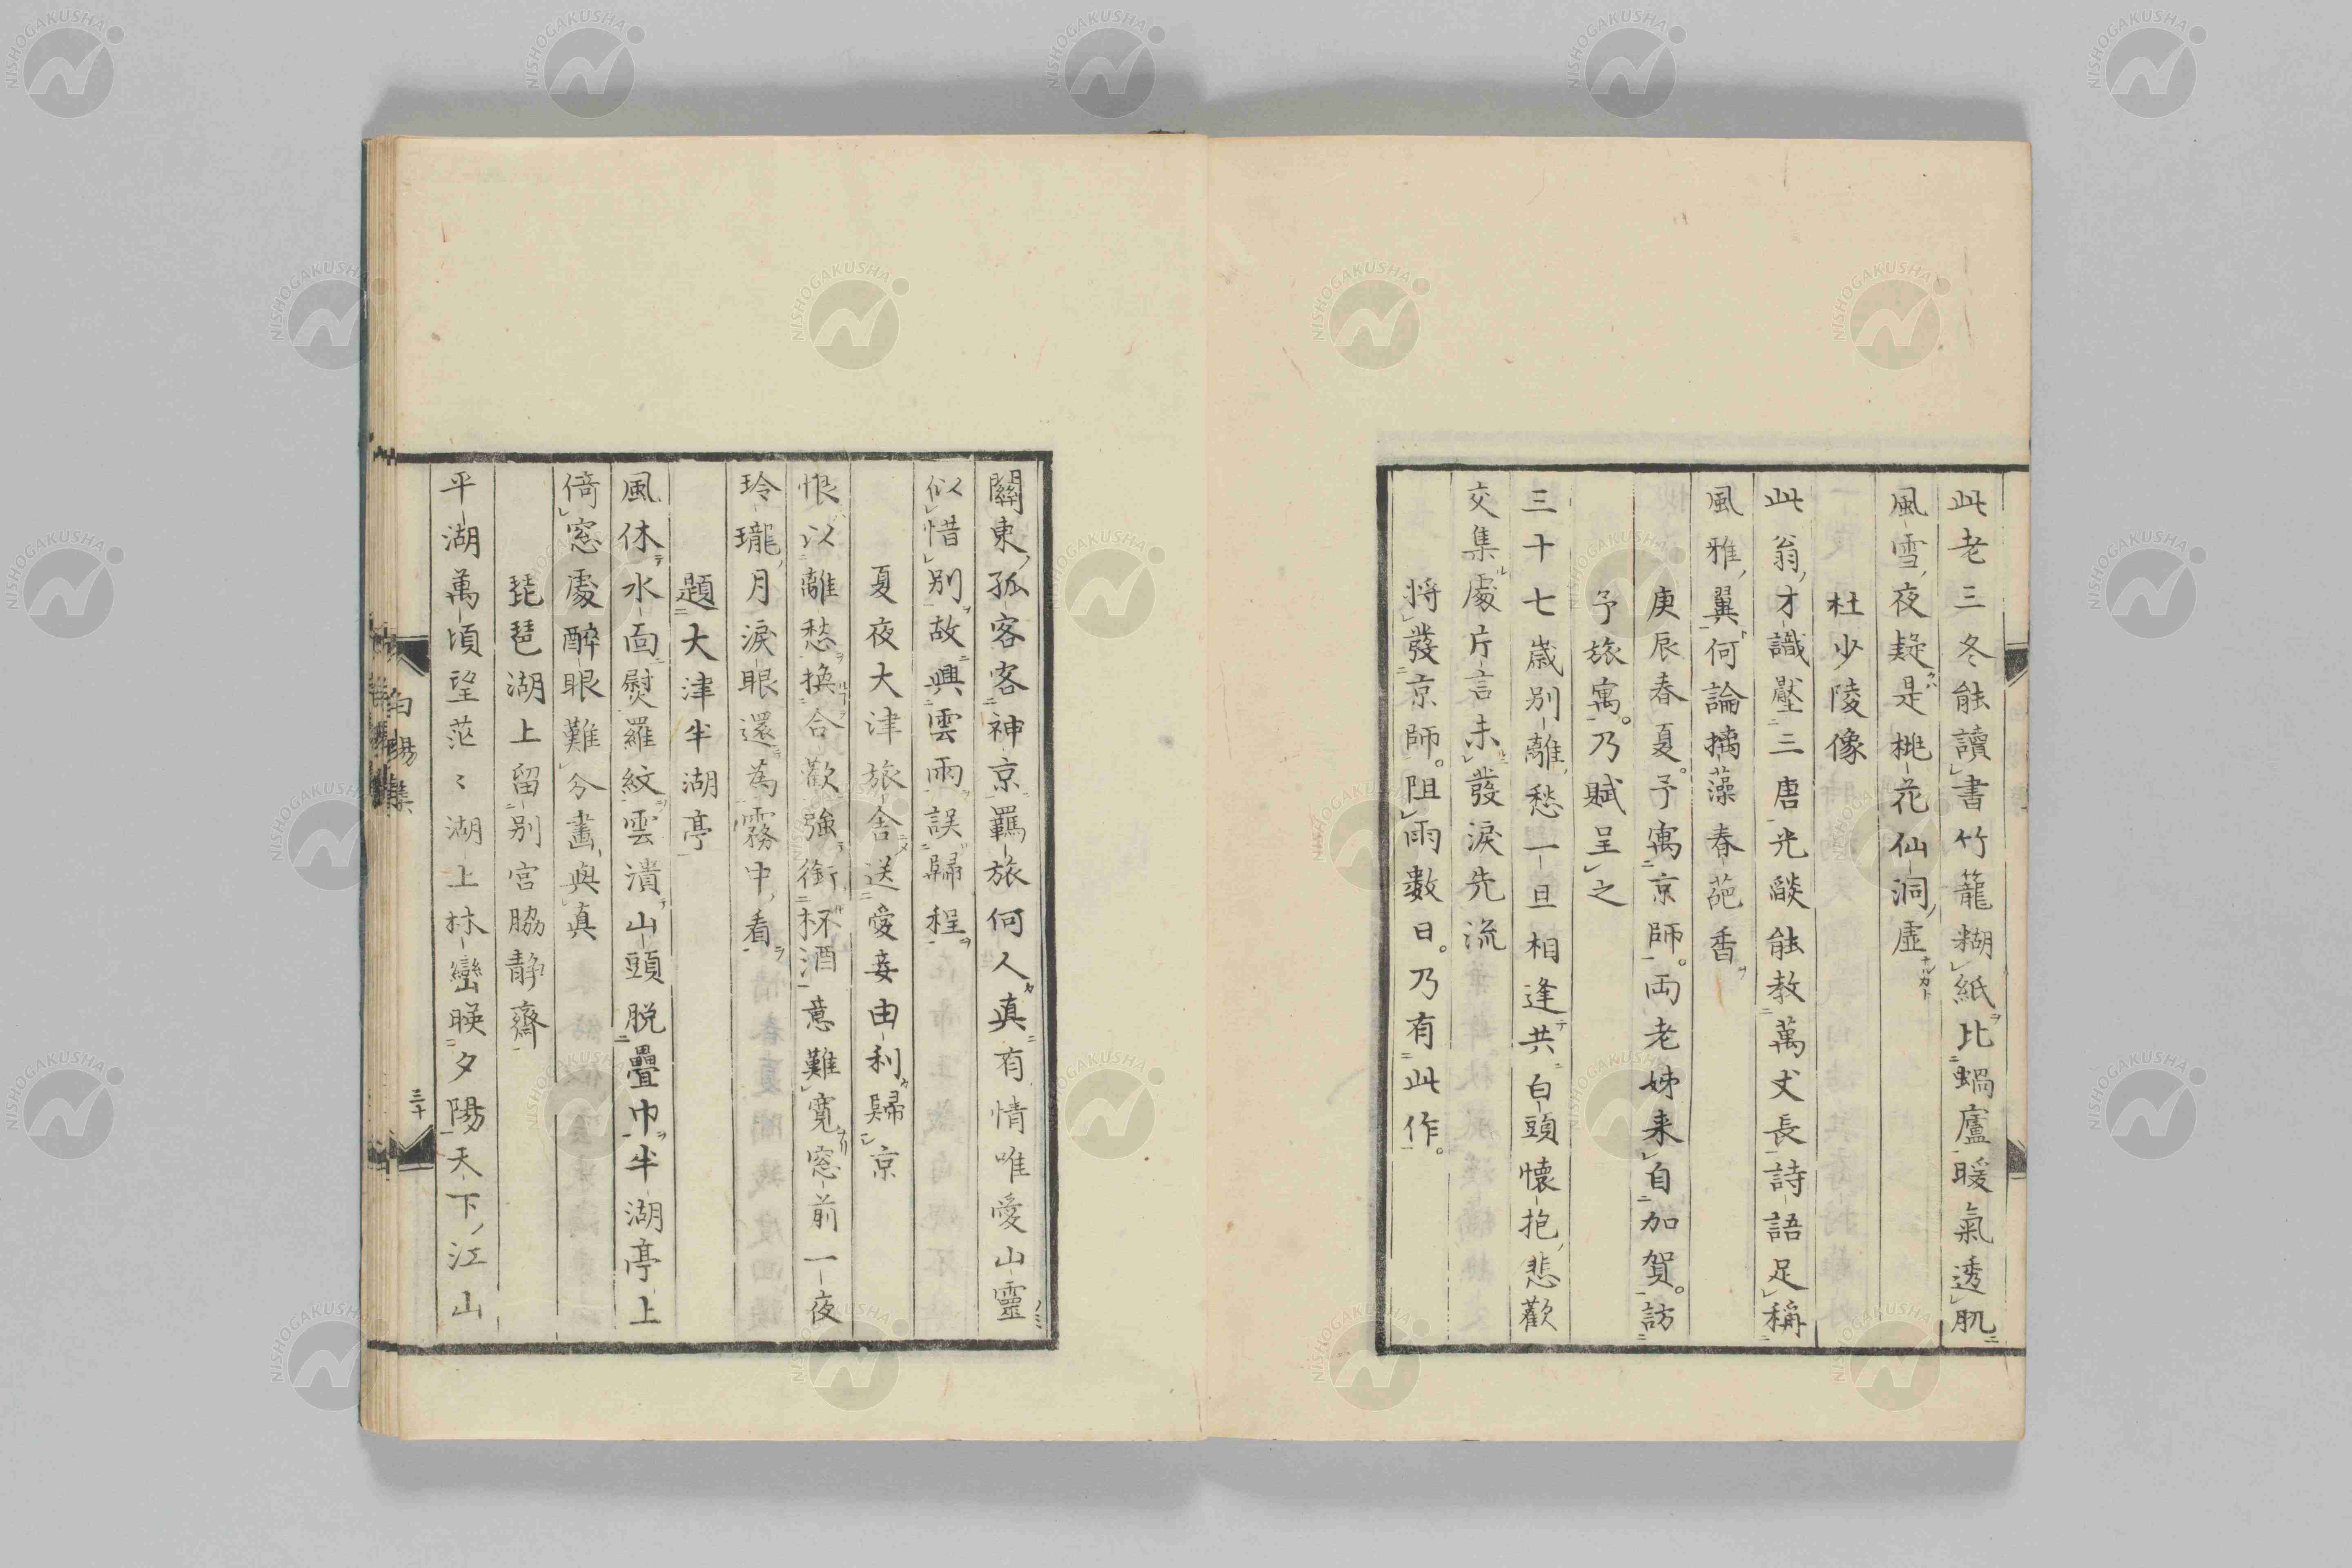 此老三冬能讀書竹籠糊紙比蝸廬暖氣透肌
風雪夜疑是桃花仙洞虛
杜少陵像
此翁才識壓三唐光燄能教萬丈長詩語足稱
風雅翼何論摛藻春葩香
庚辰春夏。予寓京師。両老姊来自加賀。訪
予旅寓。乃賦呈之
三十七歳別離愁一旦相逢共白頭懐抱悲歡
交集處片言未發淚先流
將發京師。阻雨數日。乃有此作。
關東孤客客神京羈旅何人真有情唯愛山靈
似惜別故興雲雨誤歸程
夏夜大津旅舎送愛妾由利歸京
恨以離愁換合歡強銜杯酒意難寬窓前一夜
玲瓏月淚眼還為霧中看
題大津半湖亭
風休水面熨羅紋雲潰山頭脱疊巾半湖亭上
倚窓處醉眼難分畫與真
琵琶湖上留別宮脇静齋
平湖萬頃望茫〻湖上林巒暎夕陽天下江山
白陽集
三十